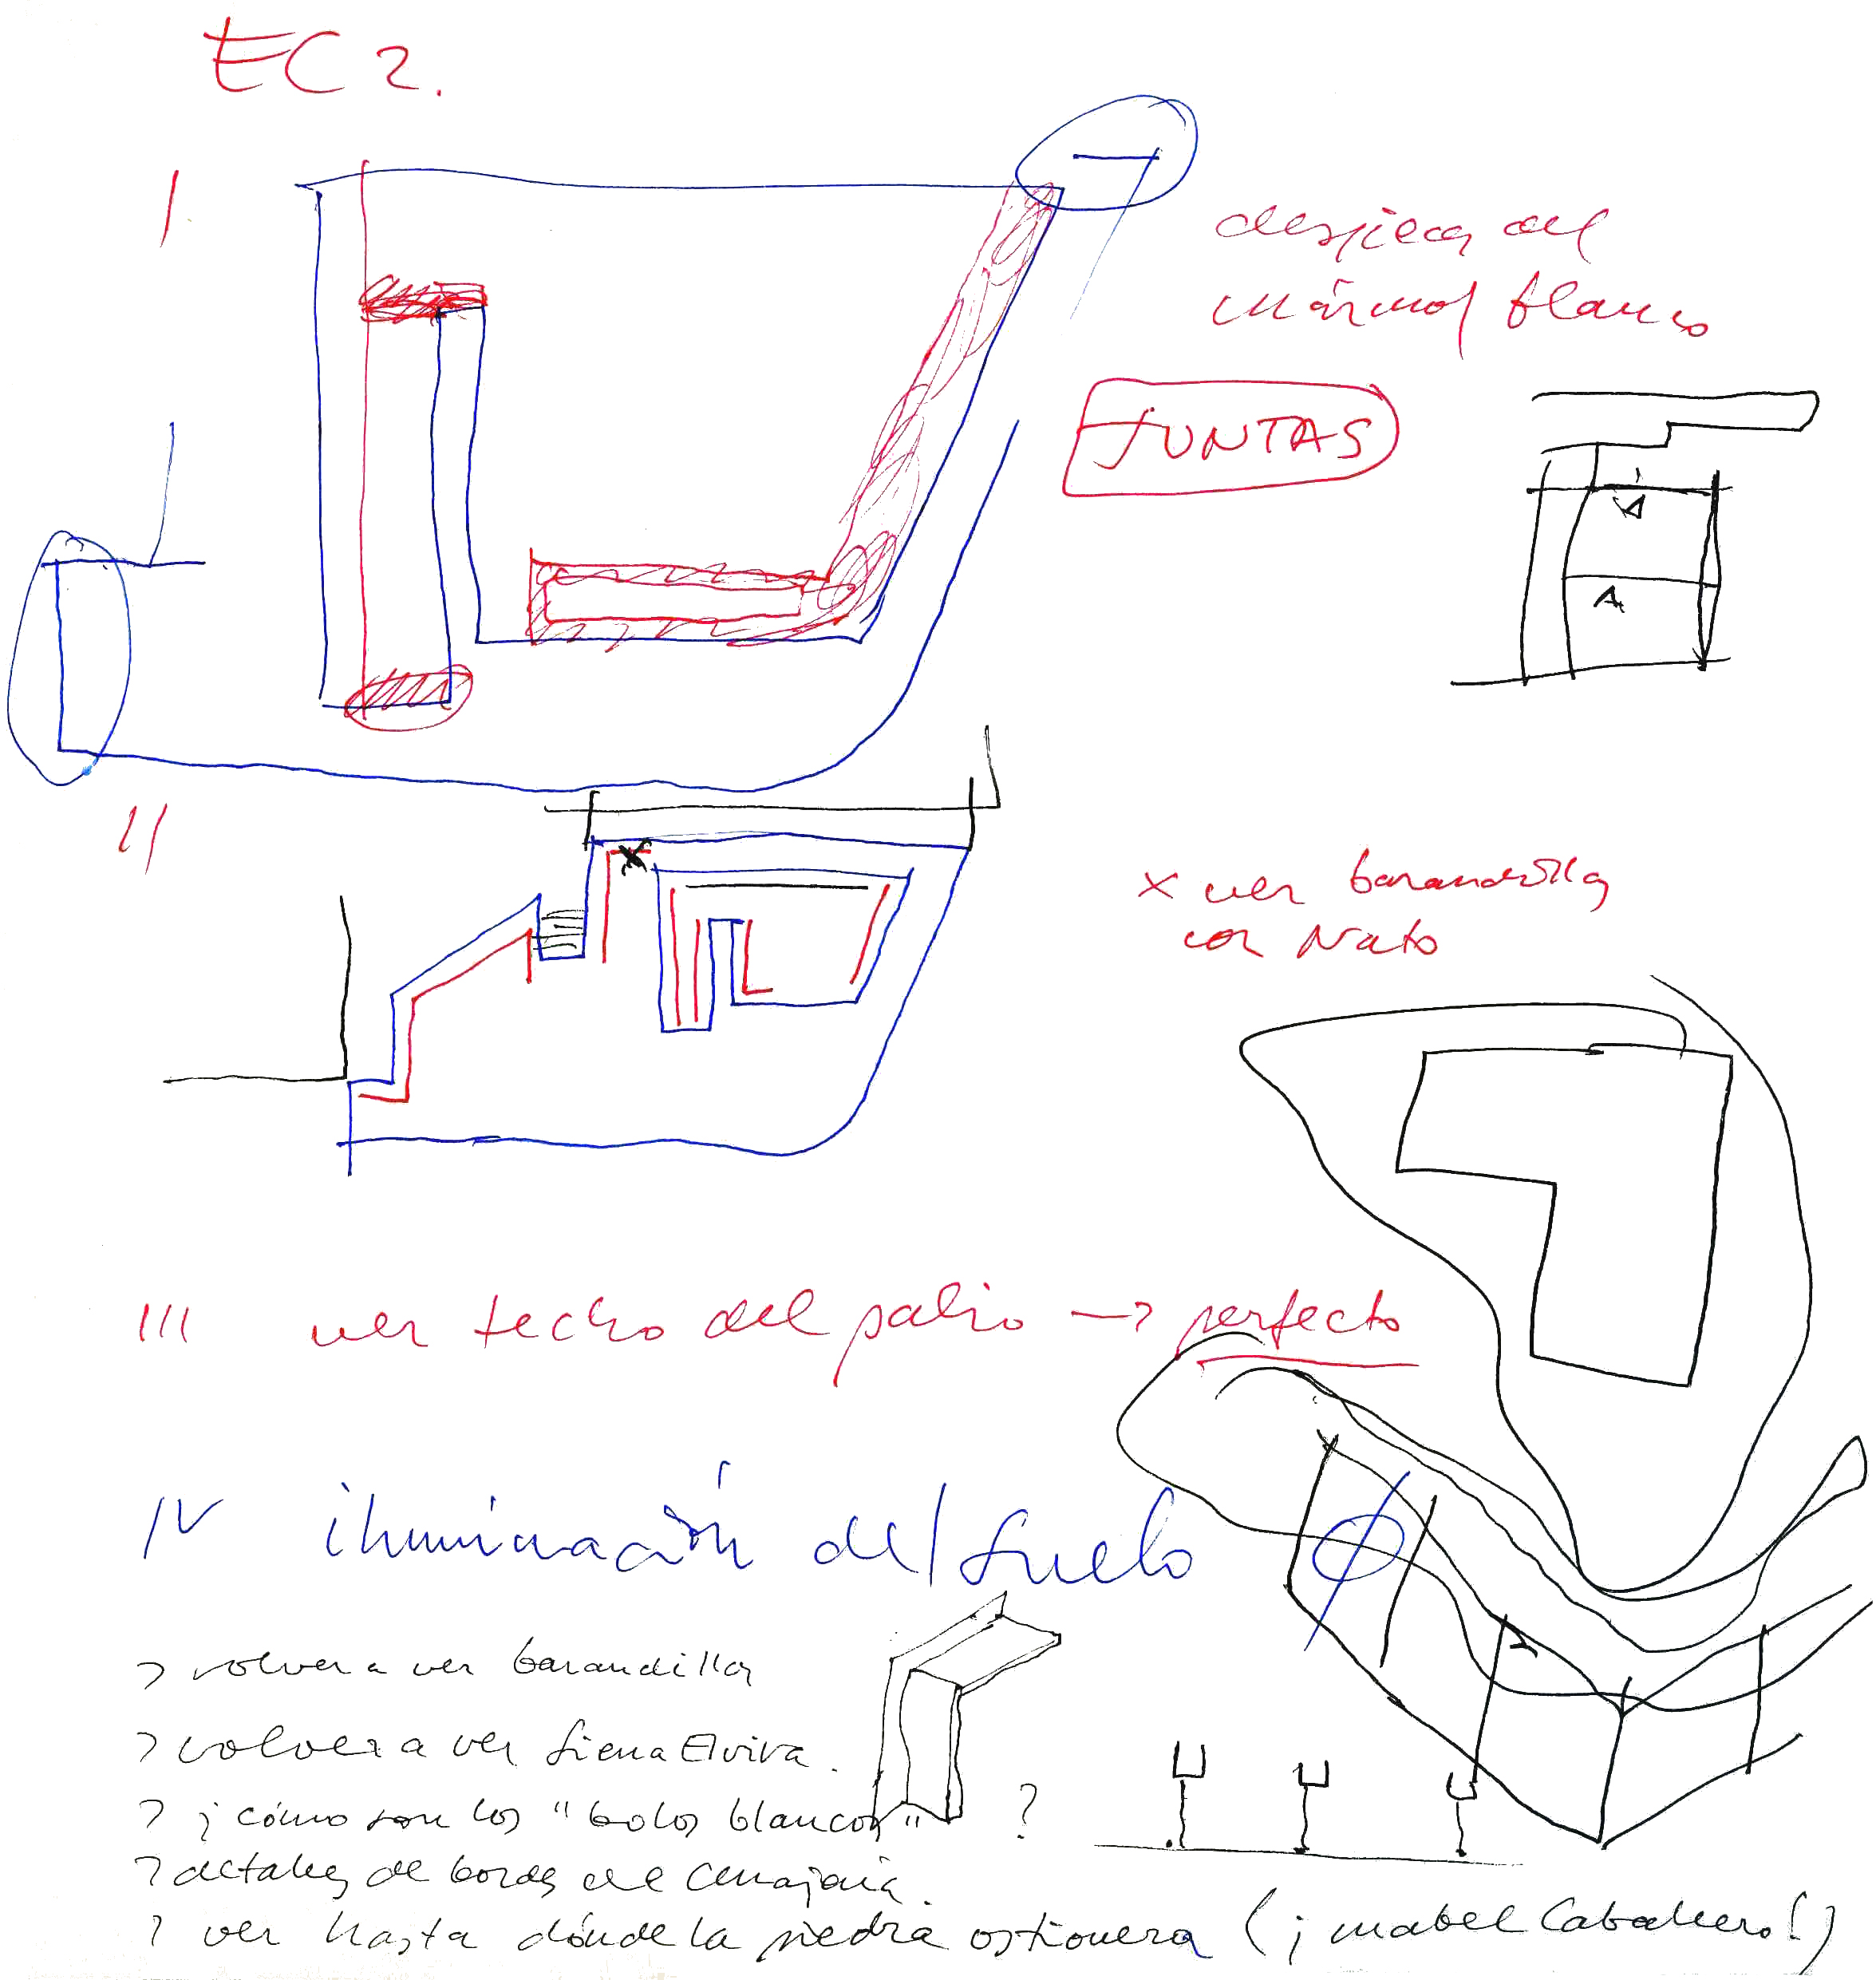 EC 2.
I
despiece del
mármol blanco
JUNTAS
A
A
II
x ver barandilla
con Nato
III ver techo del patio → perfecto
IV iluminación del suelo
> volver a ver barandilla
> volver a ver Sierra Elvira.
> ¿cómo son los "bolos blancos" ?
> detalles de bordes de cerrajería.
> ver hasta dónde la piedra ostionera (¡mabel Caballero!)